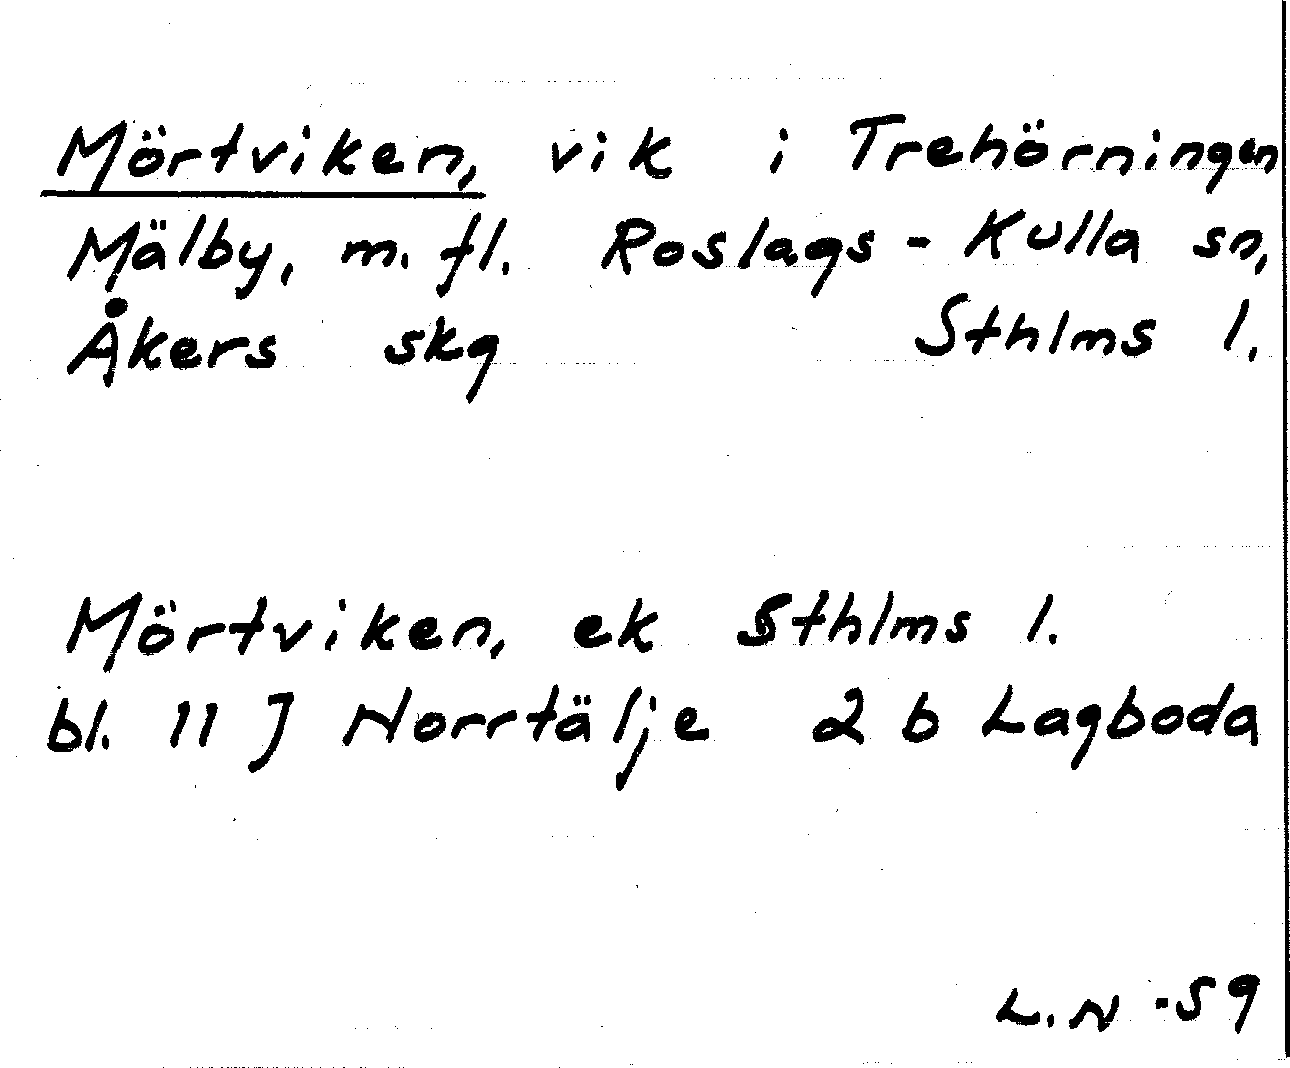 Mörtviken, vik i Trehörningen
Mälby, m. fl. Roslags-Kulla sn,
Åkers skg Sthlms l.
Mörtviken, ek Sthlms l.
bl. 11 J Norrtälje 2 b Lagboda
L. N -59